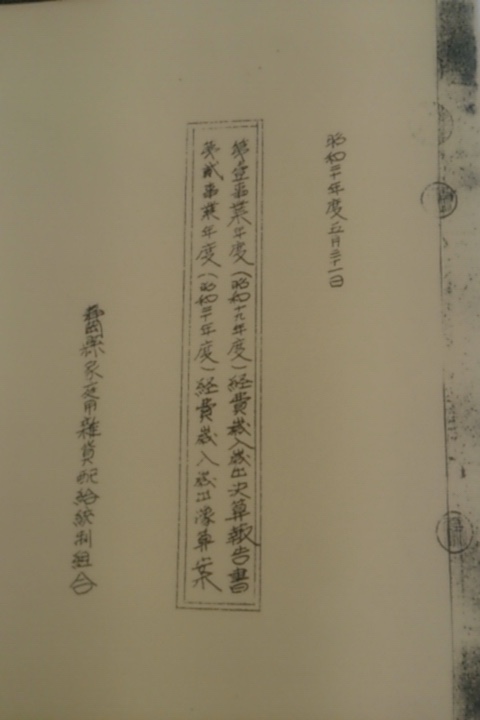 昭和二十年度五月三十一日
第壹事業年度(昭和十九年度)経費歳入歳出决算報告書
第貳事業年度(昭和二十年度)経費歳入歳出豫算案
静岡縣家庭用雜貨配給統制組合